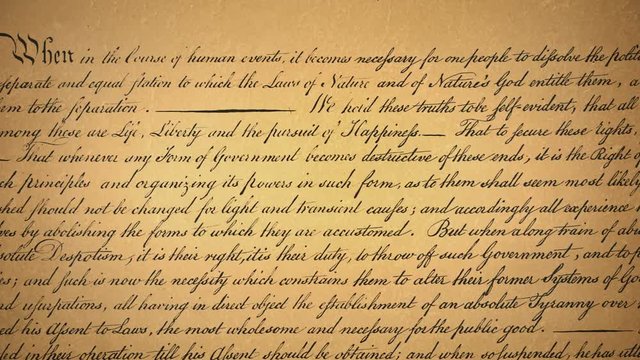 When in the Course of human events, it becomes necessary for one people to dissolve the polit
separate and equal station to which the Laws of Nature and of Nature's God entitle them, a
hem to the separation. — We hold these truths to be self-evident, that all
mong these are Life, Liberty and the pursuit of Happiness.— That to secure these rights,
— That whenever any Form of Government becomes destructive of these ends, it is the Right o
ch principles and organizing its powers in such form, as to them shall seem most likely
shed should not be changed for light and transient causes; and accordingly all experience h
ves by abolishing the forms to which they are accustomed. But when a long train of abu
solute Despotism, it is their right, it is their duty, to throw off such Government, and to p
es; and such is now the necessity which constrains them to alter their former Systems of Go
nd usurpations, all having in direct object the establishment of an absolute Tyranny over
ed his Assent to Laws, the most wholesome and necessary for the public good. —
d in their operation till his Assent should be obtained; and when so suspended, he has utte